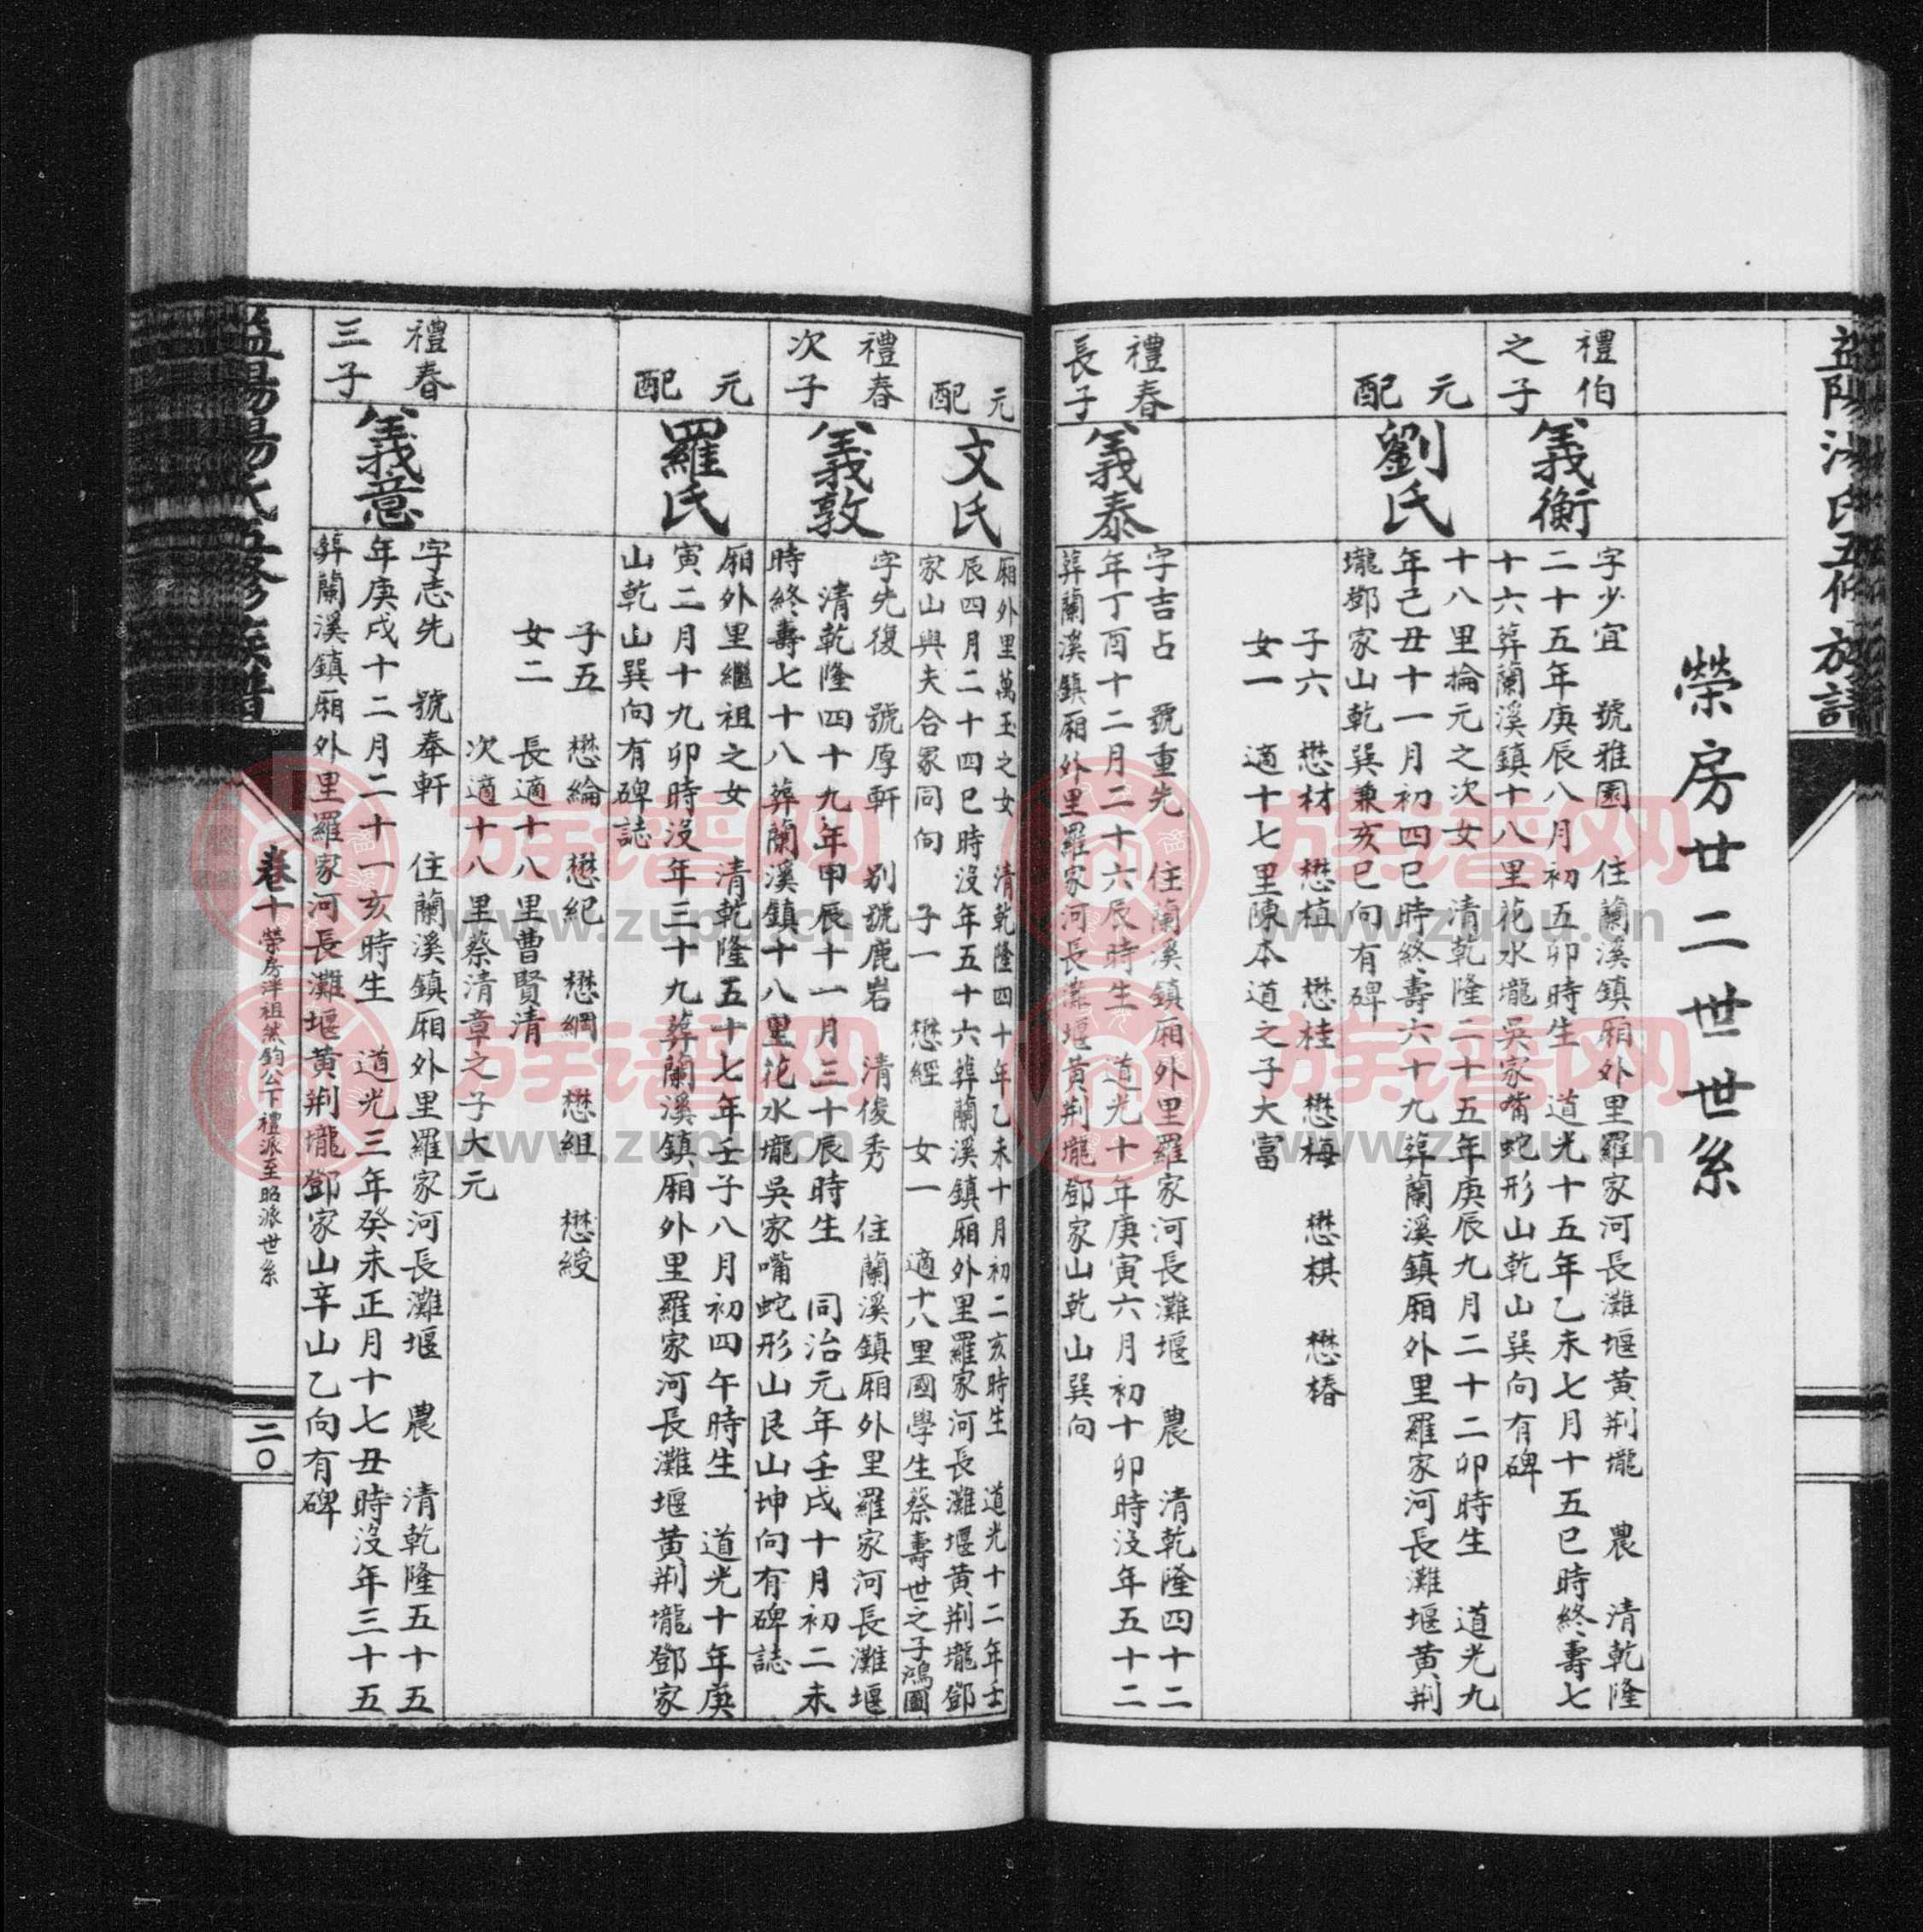 益陽湯氏五修族譜
榮房廿二世世系
禮伯
之子
義衡
字少宜　號雅園　住蘭溪鎮廂外里羅家河長灘堰黃荆壠　農　清乾隆
二十五年庚辰八月初五卯時生　道光十五年乙未七月十五巳時終壽七
十六葬蘭溪鎮十八里花水壠吳家嘴蛇形山乾山巽向有碑
元配
劉氏
十八里掄元之次女　清乾隆二十五年庚辰九月二十二卯時生　道光九
年己丑十一月初四巳時終壽六十九葬蘭溪鎮廂外里羅家河長灘堰黃荆
壠鄧家山乾巽兼亥巳向有碑
子六　懋材　懋植　懋桂　懋梅　懋棋　懋椿
女一　適十七里陳本道之子大富
禮春
長子
義泰
字吉占　號重先　住蘭溪鎮廂外里羅家河長灘堰　農　清乾隆四十二
年丁酉十二月二十六辰時生　道光十年庚寅六月初十卯時沒年五十二
葬蘭溪鎮廂外里羅家河長灘堰黃荆壠鄧家山乾山巽向
元配
文氏
廂外里萬玉之女　清乾隆四十年乙未十月初二亥時生　道光十二年壬
辰四月二十四巳時沒年五十六葬蘭溪鎮廂外里羅家河長灘堰黃荆壠鄧
家山與夫合冢同向　子一　懋經　女一　適十八里國學生蔡壽世之子鴻圖
禮春
次子
義敦
字先復　號厚軒　别號鹿岩　清俊秀　住蘭溪鎮廂外里羅家河長灘堰
清乾隆四十九年甲辰十一月三十辰時生　同治元年壬戌十月初二未
時終壽七十八葬蘭溪鎮十八里花水壠吳家嘴蛇形山艮山坤向有碑誌
元配
羅氏
廂外里繼祖之女　清乾隆五十七年壬子八月初四午時生　道光十年庚
寅二月十九卯時沒年三十九葬蘭溪鎮廂外里羅家河長灘堰黃荆壠鄧家
山乾山巽向有碑誌
子五　懋綸　懋紀　懋綱　懋組　懋綬
女二　長適十八里曹賢清
次適十八里蔡清章之子大元
禮春
三子
義意
字志先　號奉軒　住蘭溪鎮廂外里羅家河長灘堰　農　清乾隆五十五
年庚戌十二月二十一亥時生　道光三年癸未正月十七丑時沒年三十五
葬蘭溪鎮廂外里羅家河長灘堰黃荆壠鄧家山辛山乙向有碑
益陽湯氏五修族譜
卷十　榮房泮祖然鈞公下禮派至昭派世系
二〇
族谱网
www.zupu.cn
族谱网
www.zupu.cn
族谱网
www.zupu.cn
族谱网
www.zupu.cn